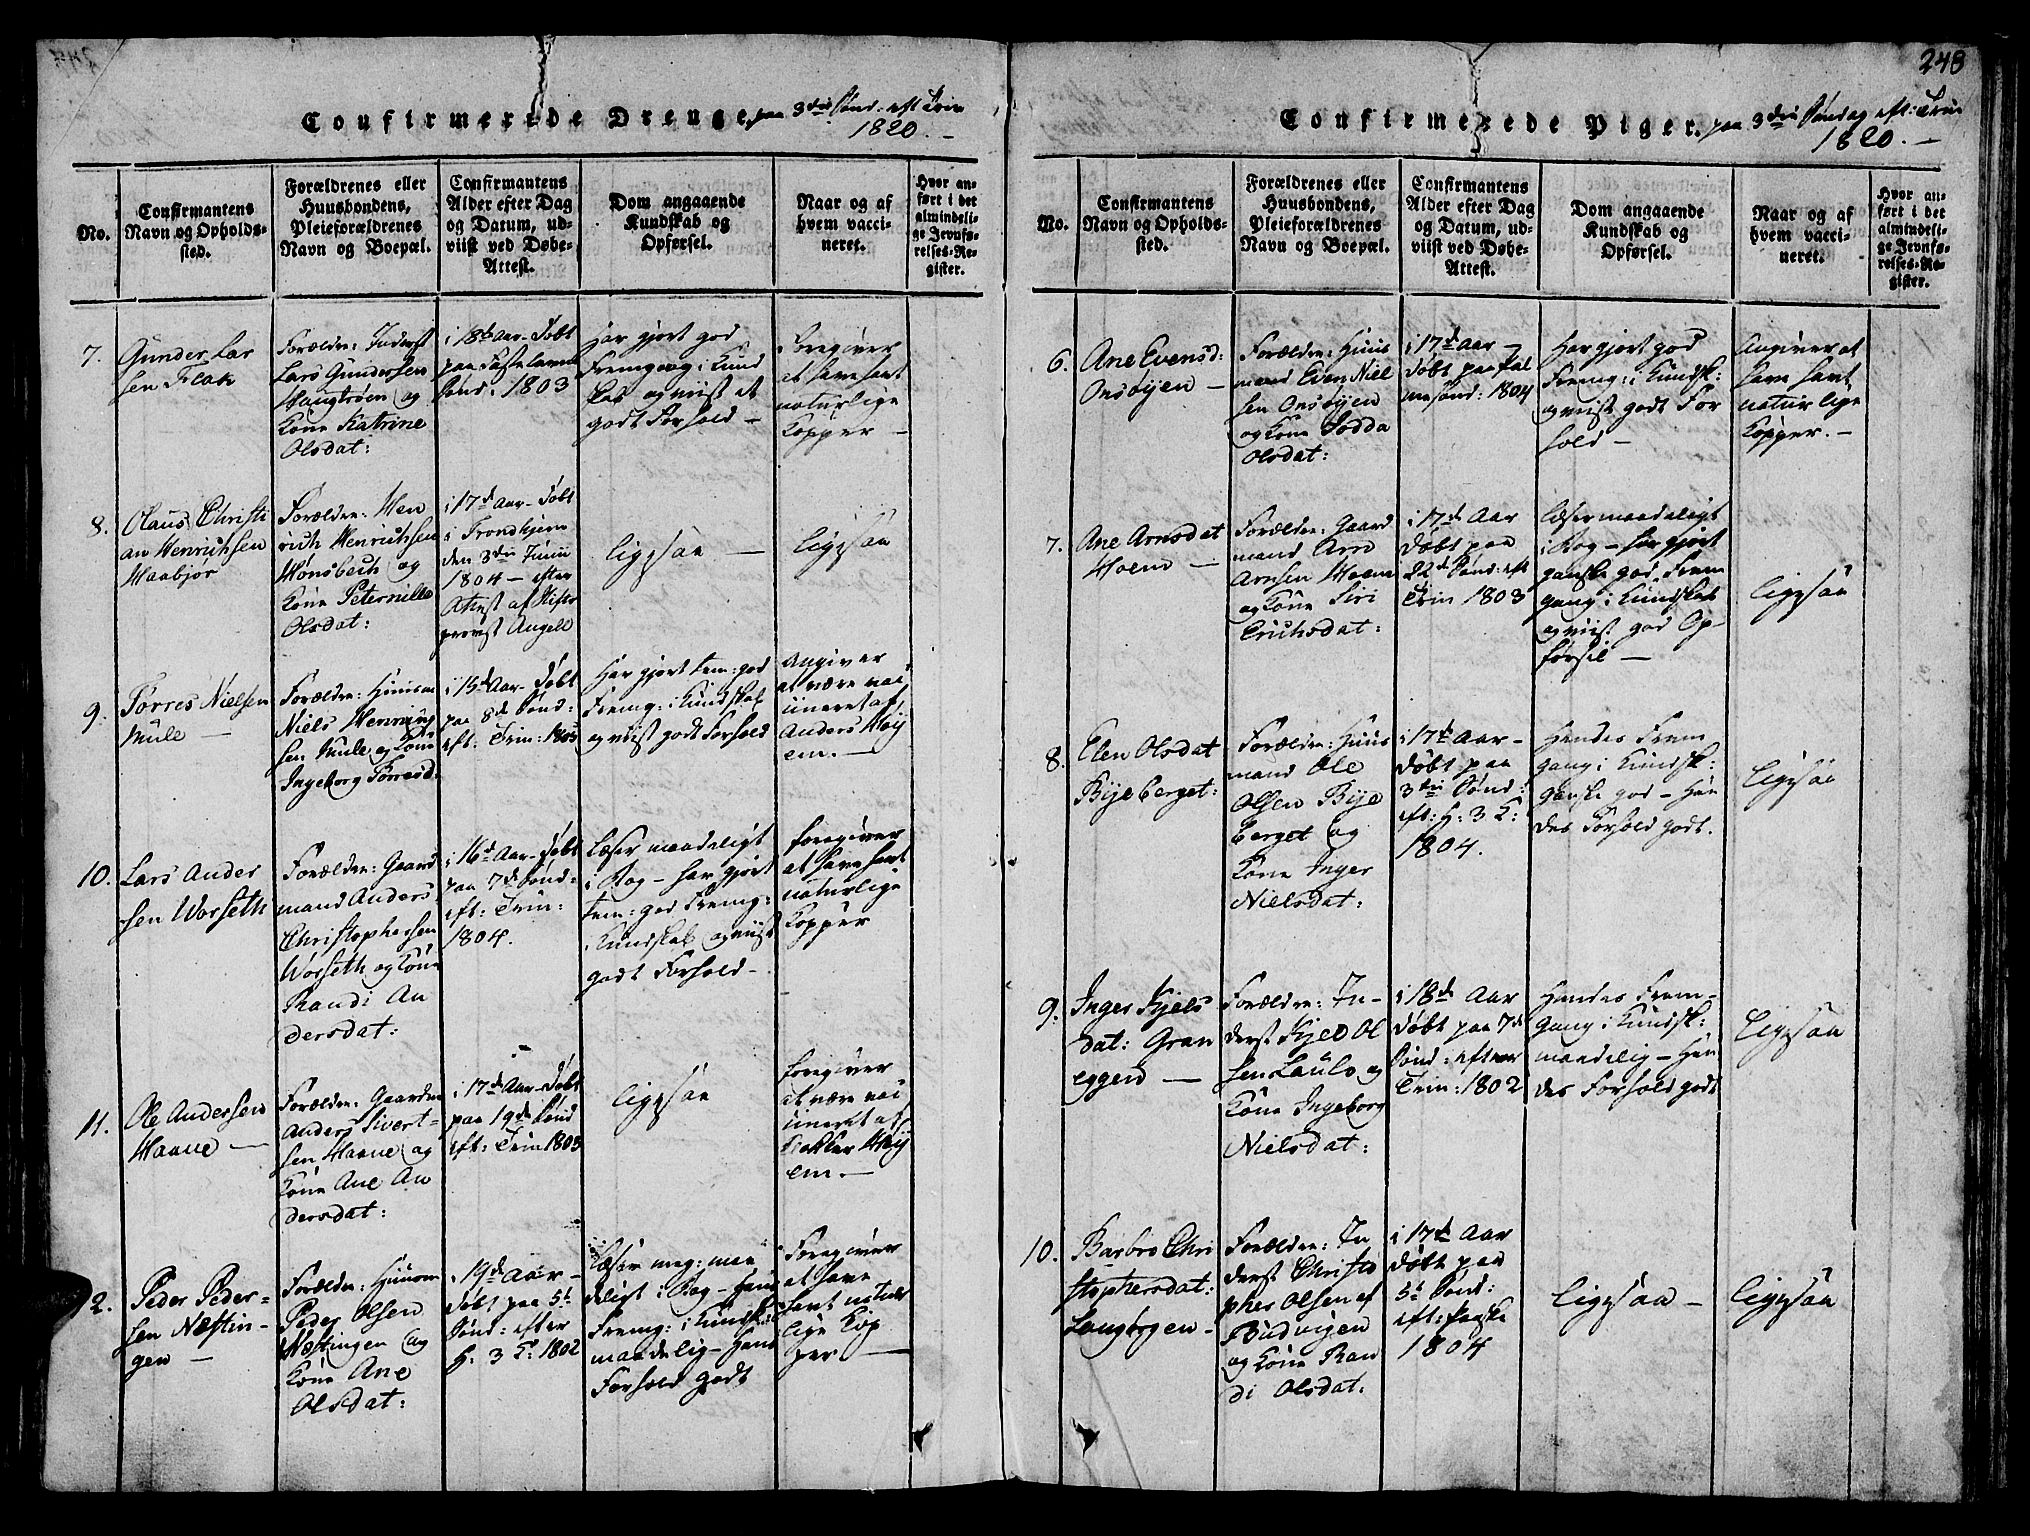 248
Confirmerede Drenge, paa 3die Sønd: eft Trin
1820. —
No.
Confirmantens
Navn og Opholds-
sted.
Forældrenes eller
Huusbondens,
Pleieforældrenes
Navn og Boepæl.
Confirmantens
Alder efter Dag
og Datum, ud-
viist ved Døbe-
Attest.
Dom angaaende
Kundskab og
Opførsel.
Naar og af
hvem vacci-
neret.
Hvor an-
ført i det
almindeli-
ge Jevnfø-
relses-Re-
gister.
7.
Gunder Lar
sen Flak
Forældre: Inderst
Lars Gundersen
Haugtrøen og
Kone Katrine
Olsdat:
i 18d Aar - Døbt
paa Fastelavns
Sønd: 1803
Har gjort god
Fremgang i Kund
skab og viist et
godt Forhold —
Foregiver
at have havt
naturlige
Kopper —
8.
Olaus Christi
an Henrichsen
Haabjør
Forældre: Hen
rich Henrichsen
Hønsbech og
Kone Peternille
Olsdat:
i 17d Aar - Døbt
i Trondhjem
den 3die Junii
1804 — efter
Attest af Stifts
provst Angell
ligesaa —
ligesaa
9.
Torres Nielsen
Mule —
Forældre: Huusm
Niels Henning
sen Mule og Kone
Ingeborg Torresd.
i 15d Aar - Døbt
paa 8d Sønd:
eft: Trin: 1805
Har gjort tem: god
Fremg: i Kundskab
og viist godt Forhold
Angiver
at være vac
cineret af
Anders Høy
em. —
10.
Lars Ander
sen Worseth
Forældre: Gaard
mand Anders
Christophersen
Worseth og Kone
Randi An
dersdat:
i 16d Aar - Døbt
paa 7d Sønd:
eft: Trin:
1804.
Læser maadeligt
i Bog — har gjort
tem: god Fremg:
i Kundskab og viist
godt Forhold —
foregiver
at have havt
naturlige
Kopper
11.
Ole Andersen
Haave —
Forældre: Gaardm
Anders Sivert-
sen Haave og
Kone Ane An
dersdat:
i 17d Aar - Døbt
paa 19d Sønd
eft: Trin 1803
ligesaa
foregiver
at være vac
cineret af
Klokker Høy
em. —
2.
Peder Peder-
sen Næstin-
gen —
Forældre: Huusm
Peder Olsen
Næstingen og
Kone Ane
Olsdat:
i 19d Aar —
Døbt paa 5t
Sønd: efter
H: 3 K: 1802
Læser meg: maa
deligt i Bog — Hans
Fremg: i Kundskab
maadelig — Hans
Forhold godt
Foregiver
at have
havt natur
lige Kop
per —
Confirmerede Piger. paa 3die Søndag eft: Trin
1820. —
No.
Confirmantens
Navn og Opholds-
sted.
Forældrenes eller
Huusbondens,
Pleieforældrenes
Navn og Boepæl.
Confirmantens
Alder efter Dag
og Datum, ud-
viist ved Døbe-
Attest.
Dom angaaende
Kundskab og
Opførsel.
Naar og af
hvem vacci-
neret.
Hvor an-
ført i det
almindeli-
ge Jevnfø-
relses-Re-
gister.
6.
Ane Evensd:
Onsøyen —
Forældre: Huus
mand Even Niel
sen Onsøyen
og Kone Dodda
Olsdat:
i 17d Aar —
døbt paa Pal
me Sønd: 1804
Har gjort god
Fremg: i Kundsk:
og viist godt For
hold —
Angiver at
have havt
naturlige
Kopper. —
7.
Ane Arnsdat
Hoem —
Forældre: Gaard
mand Arn
Arnsen Hoem
og Kone Siri
Erichsdat:
i 17d Aar
døbt paa
22d Sønd: eft
Trin 1803
læser maadeligt
i Bog — har gjort
ganske god Frem
gang i Kundskab
og viist god Op-
førsel —
ligesaa
8.
Elen Olsdat
Bijeberget:
Forældre: Huus
mand Ole
Olsen Bije
berget og
Kone Inger
Nielsdat:
i 17d Aar —
døbt paa
3die Sønd:
eft: H: 3 K:
1804.
Hendes Frem
gang i Kundsk:
ganske god — Hen
des Forhold godt.
ligesaa
9.
Inger Kjels
dat: Gran
eggen —
Forældre: In-
derst Kjeld Ol
sen Laulo og
Kone Ingeborg
Nielsdat:
i 18d Aar
døbt paa 7d
Sønd: efter
Trin: 1802
Hendes Frem-
gang i Kundsk:
maadelig — Hen
des Forhold godt
ligesaa
10.
Barbro Chri
stophersdat:
Langørgen —
Forældre: In
derst Christo
pher Olsen af
Budvigen
og Kone Ran
di Olsdat.
i 17d Aar
døbt paa
5t Sønd:
eft: Paaske
1804
ligesaa —
ligesaa